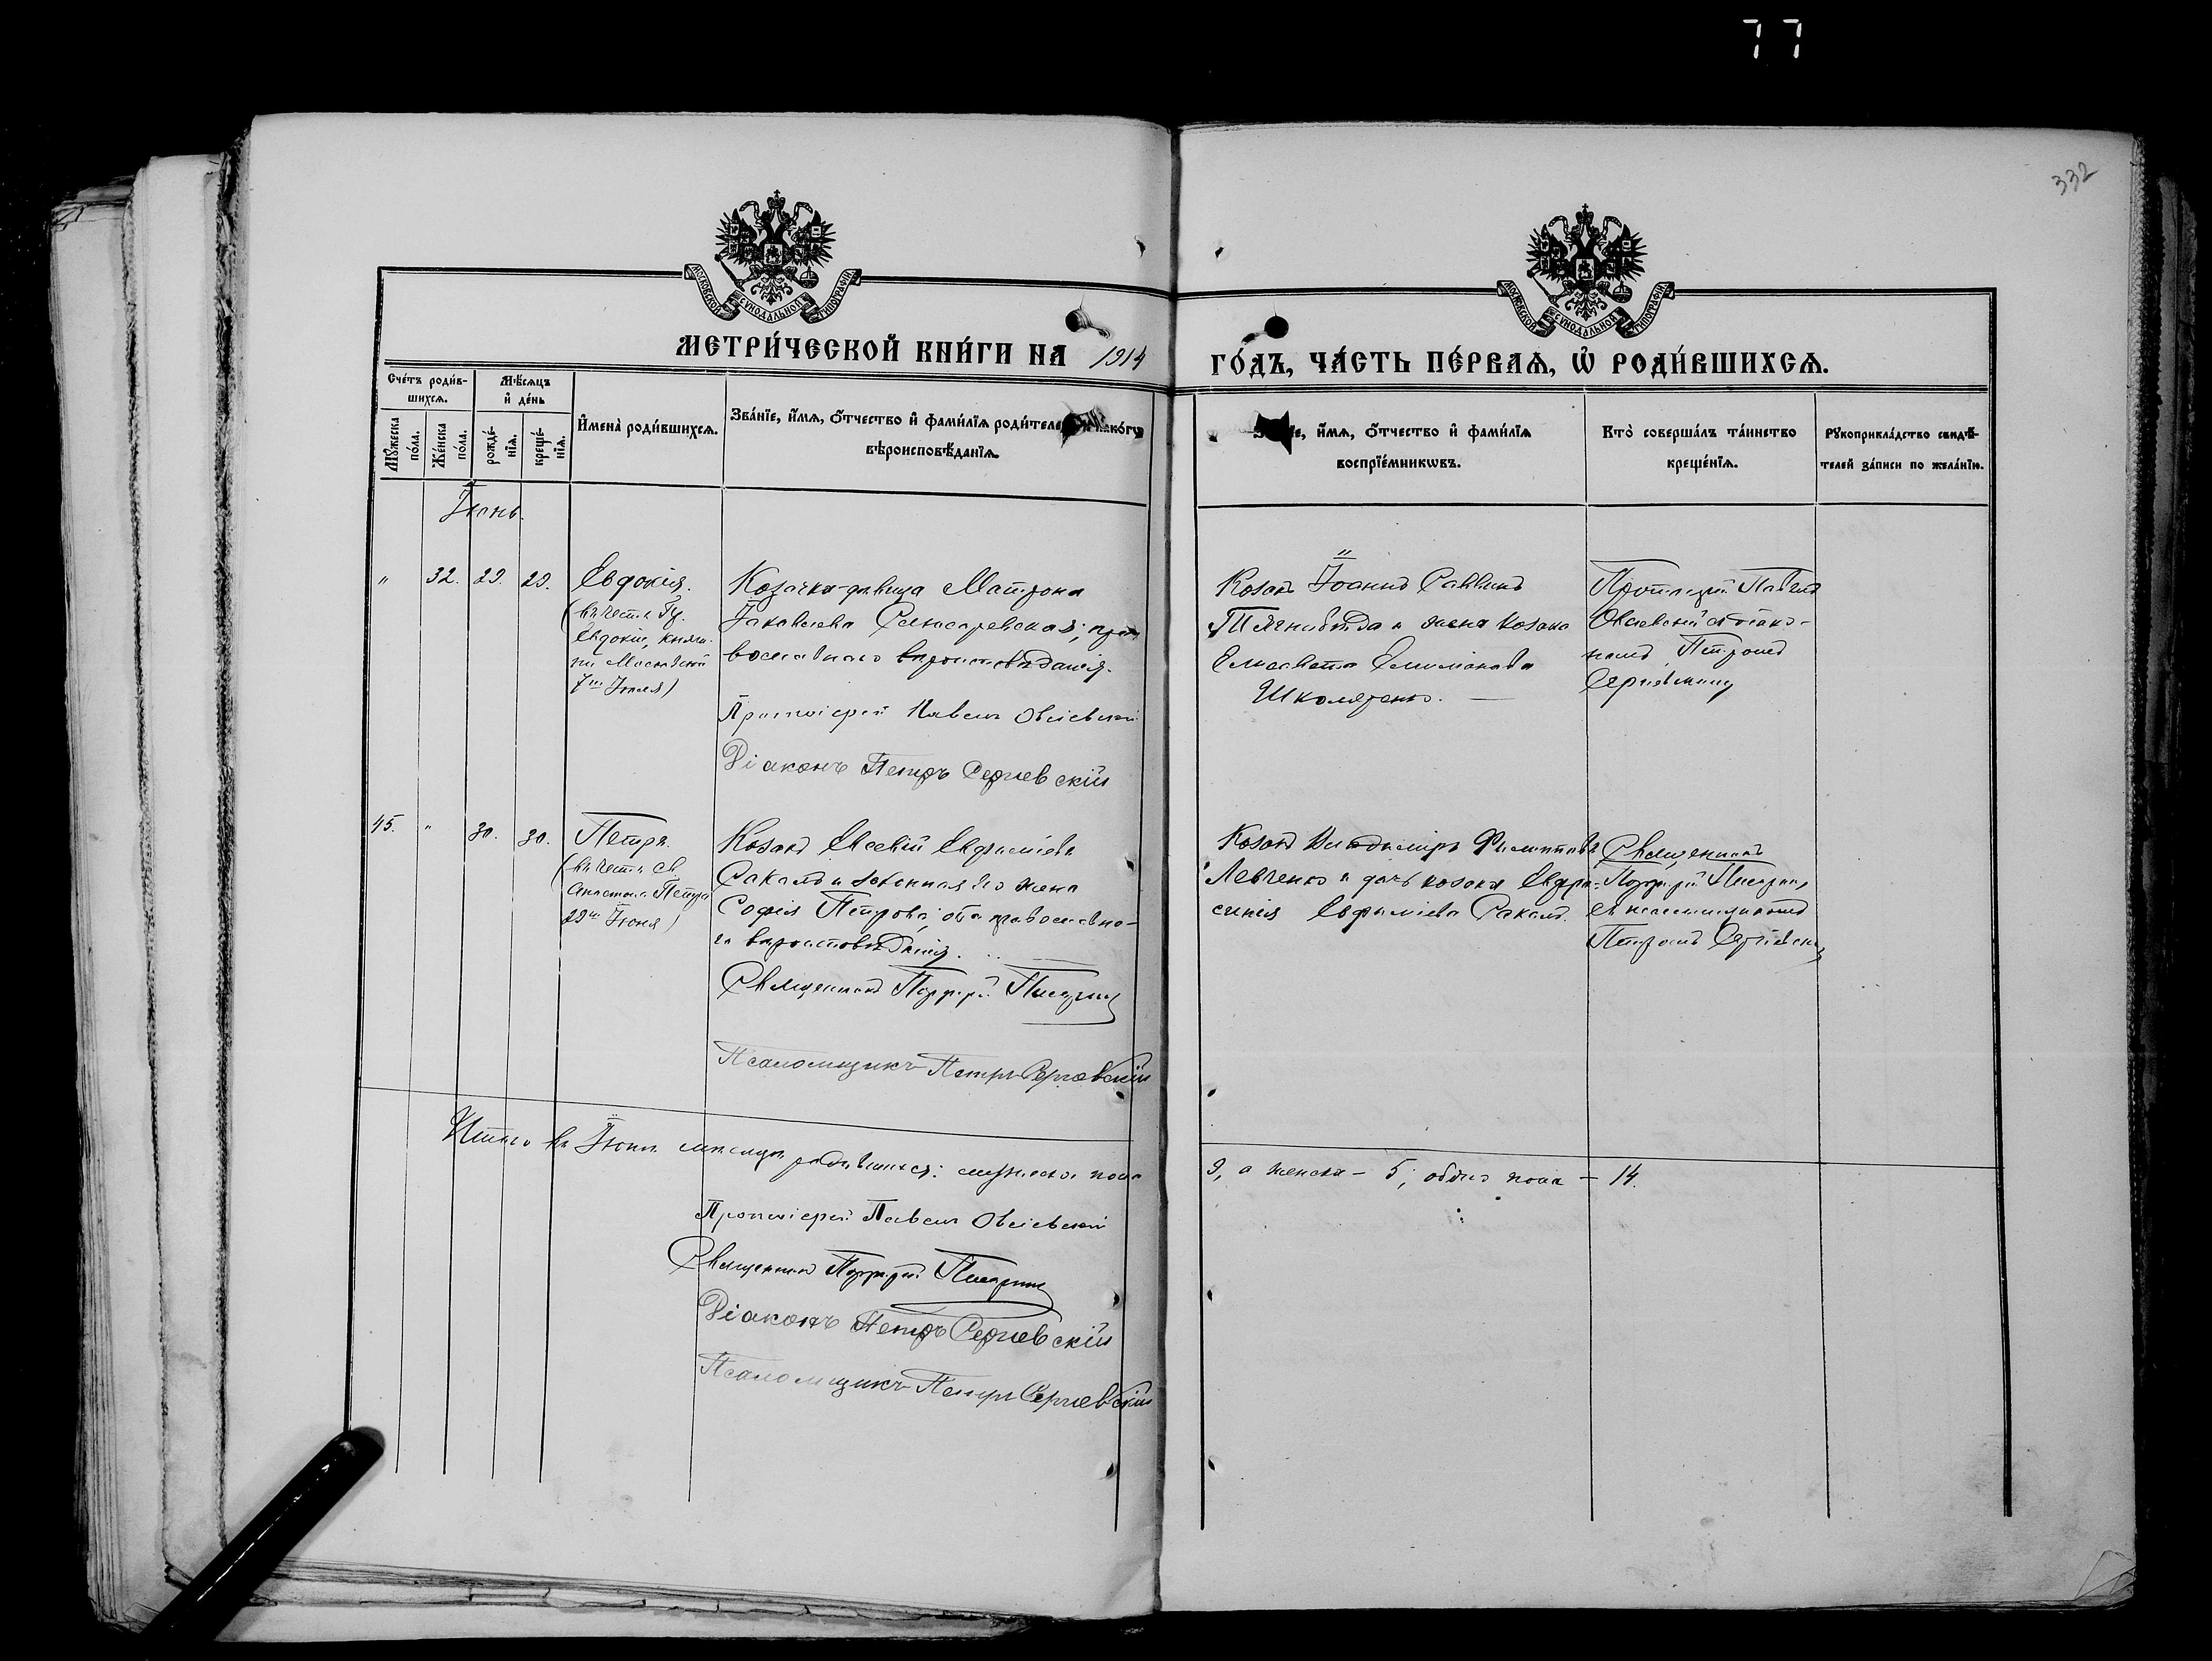 77
332
МОСКОВСКОЙ СѴНОДАЛЬНОЙ ТИПОГРАФІИ
МОСКОВСКОЙ СѴНОДАЛЬНОЙ ТИПОГРАФІИ
МЕТРИ́ЧЕСКОЙ КНИ́ГИ НА 1914
ГО́ДЪ, ЧА́СТЬ ПЕ́РВАѦ, Ѡ РОДИ́ВШИХСѦ.
Сче́тъ роди́в-
шихсѧ.
Мѣ́сѧцъ
и де́нь
Мꙋ́жеска
по́ла.
Же́нска
по́ла.
рожде́-
нїѧ.
креще́-
нїѧ.
И҆мена̀ роди́вшихсѧ.
Зва́нїе, и҆́мѧ, ѻ҆́тчество и҆ фами́лїѧ роди́теле како́гѡ
вѣроисповѣ́данїѧ.
е, и҆́мѧ, ѻ҆́тчество и҆ фами́лїѧ
воспрїе́мникѡвъ.
Кто̀ соверша́лъ та́инство
креще́нїѧ.
Рꙋкоприкла́дство свидѣ́-
телей за́писи по жела́нїю.
Іюнь.
" 32. 29. 29. Евдокія.
(въ честь Пр.
Евдокіи, княги-
ни Московской
7го Іюля)
Козачка-дѣвица Матрона
Іаковлева православнаго вѣроисповѣданія.
Протоіерей Павелъ Овсіевскій
Діаконъ Петръ Сергіевскій
Козакъ Іоаннъ Саввинъ
Тягнибѣда и жена козака
Елисавета
Школяренко.
Протоіерей Павелъ
Овсіевскій съ діако-
номъ Петромъ
Сергіевскимъ
45. " 30. 30. Петръ.
(въ честь св.
Апостола Петра
29го Іюня)
Козакъ Евсевій Евфиміевъ
Сакалъ и законная его жена
Софія Петрова; оба православна-
го вѣроисповѣданія.
Священникъ Порфирій
Псаломщикъ Петръ Сергіевскій
Козакъ Владиміръ Филипповъ
Левченко и дочь козака Евфро-
синія Евфиміева Сакалъ.
Священникъ
Порфирій
съ псаломщикомъ
Петромъ Сергіевскимъ
Итого въ Іюнѣ мѣсяцѣ родившихся: мужеска пола
9, а женска – 5; обоего пола – 14.
Протоіерей Павелъ Овсіевскій
Священникъ Порфирій
Діаконъ Петръ Сергіевскій
Псаломщикъ Петръ Сергіевскій